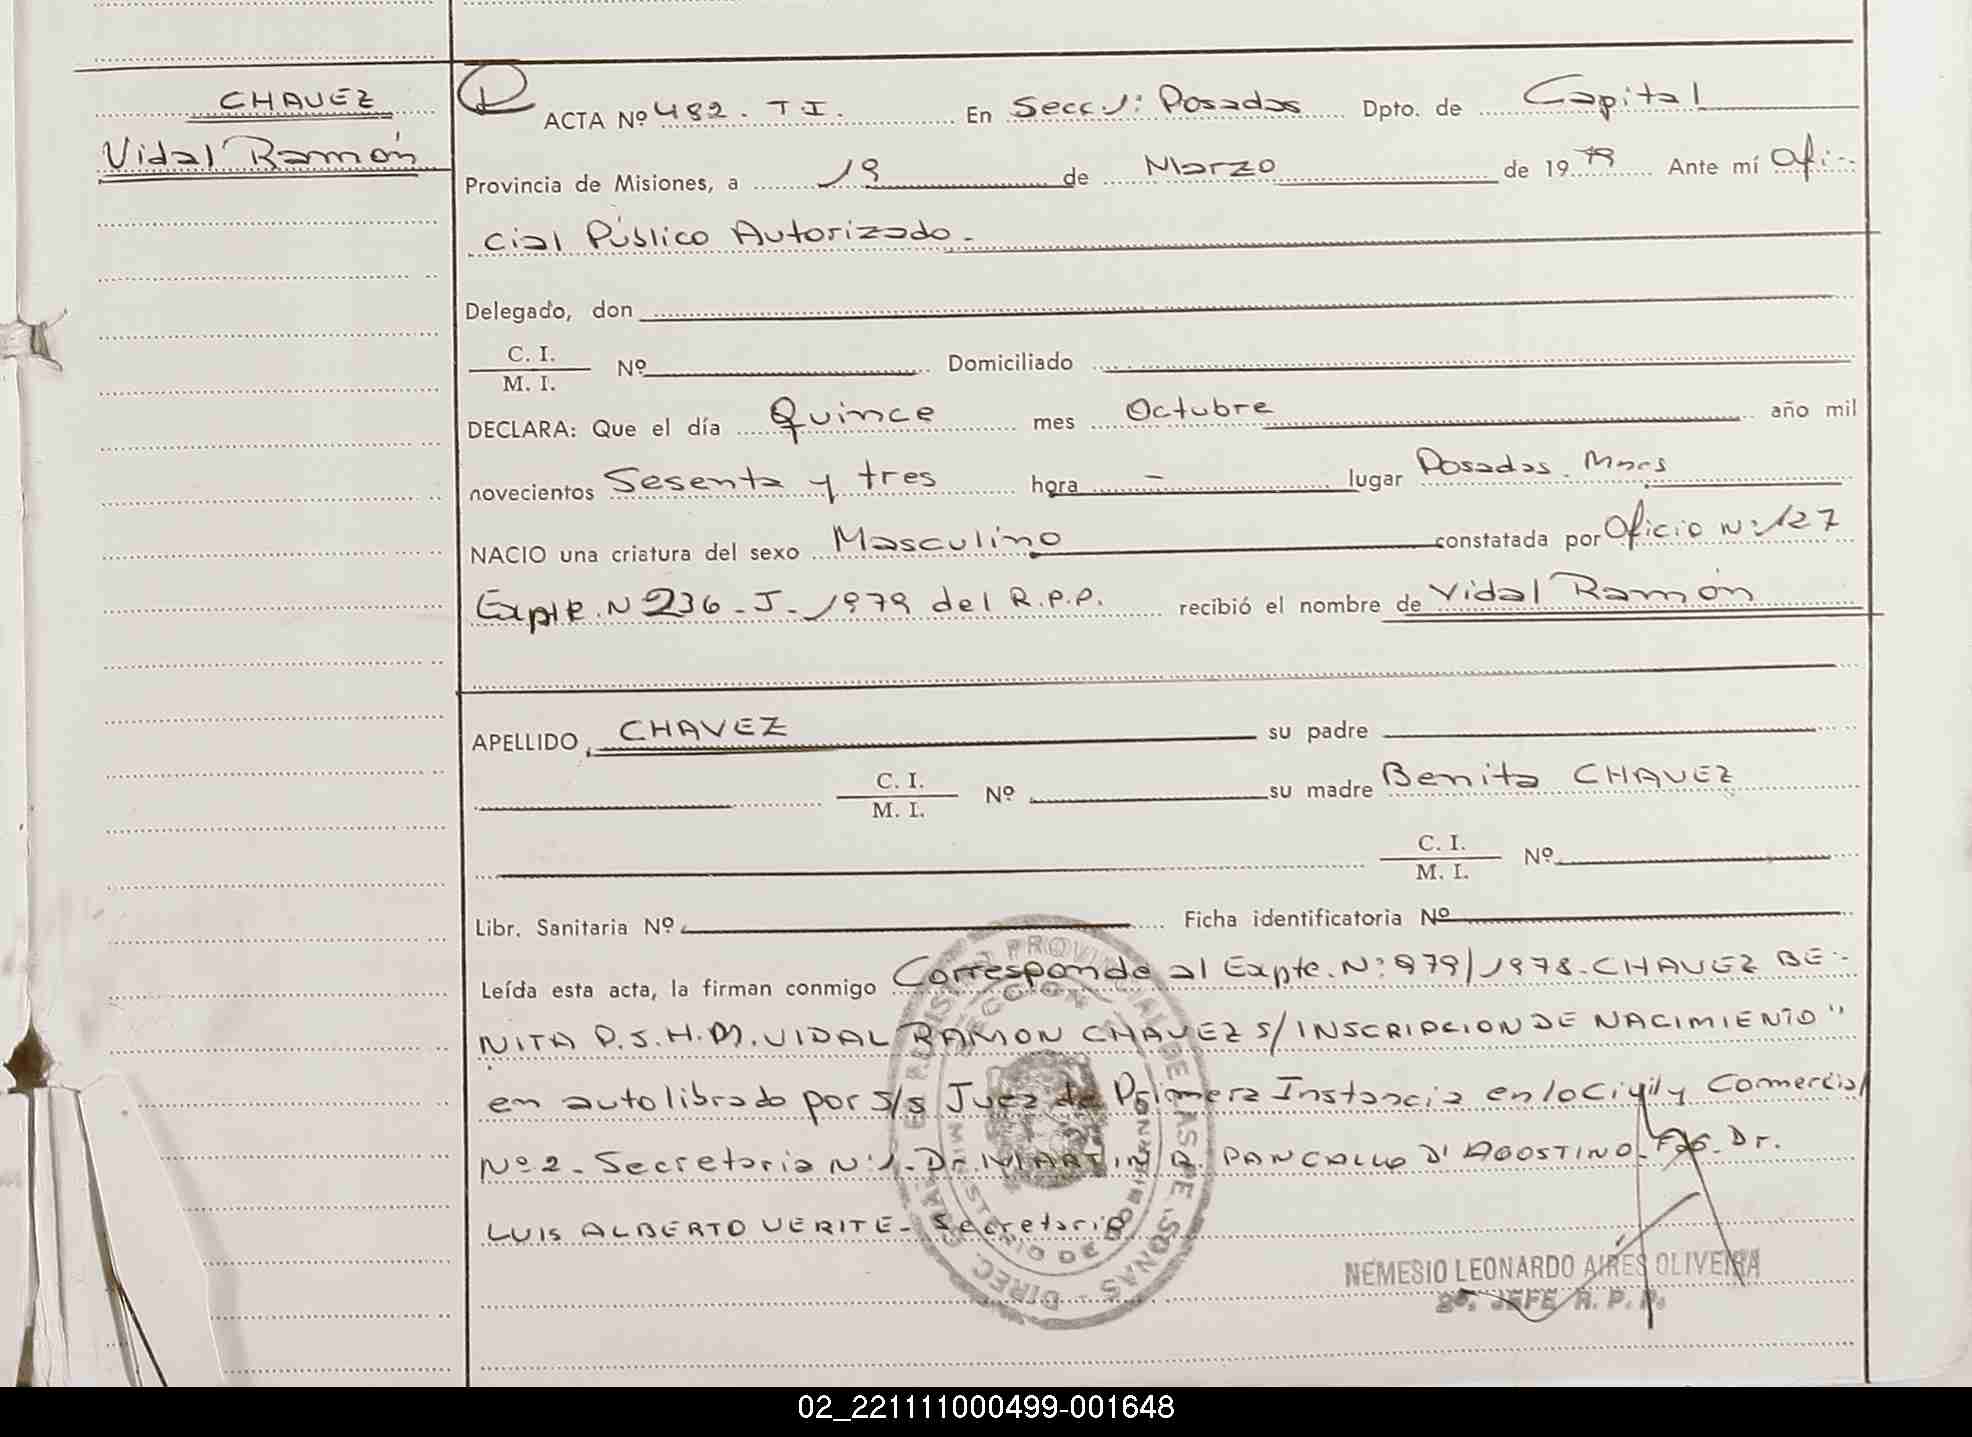 CHAVEZ
Vidal Ramón
ACTA Nº 482. T I. En Secc 1: Posadas Dpto. de Capital
Provincia de Misiones, a 19 de Marzo de 1979 Ante mí Ofi-
cial Público Autorizado.
Delegado, don
C. I.
M. I. Nº Domiciliado
DECLARA: Que el día Quince mes Octubre año mil
novecientos Sesenta y tres hora - lugar Posadas. Mnes
NACIO una criatura del sexo Masculino constatada por Oficio N: 127
Expte. N 236 - J - 1979 del R.P.P. recibió el nombre de Vidal Ramón
APELLIDO, CHAVEZ su padre
C. I.
M. I. Nº su madre Benita CHAVEZ
C. I.
M. I. Nº
Libr. Sanitaria Nº Ficha identificatoria Nº
Leída esta acta, la firman conmigo Corresponde al Expte. N: 979/1978 - CHAVEZ BE-
NITA P.S.H.M. VIDAL RAMON CHAVEZ S/INSCRIPCION DE NACIMIENTO"
en auto librado por S/S Juez de Primera Instancia en lo Civil y Comercial
Nº 2 - Secretaria N: 1 - Dr. MARTIN R. PANCALLO D'AGOSTINO - Fdo. Dr.
LUIS ALBERTO VERITE - Secretario
DIREC. GRAL. PROVINCIAL DE LAS PERSONAS
MINISTERIO DE GOBIERNO
NEMESIO LEONARDO AIRES OLIVEIRA
2º. JEFE R. P. P.
02_221111000499-001648